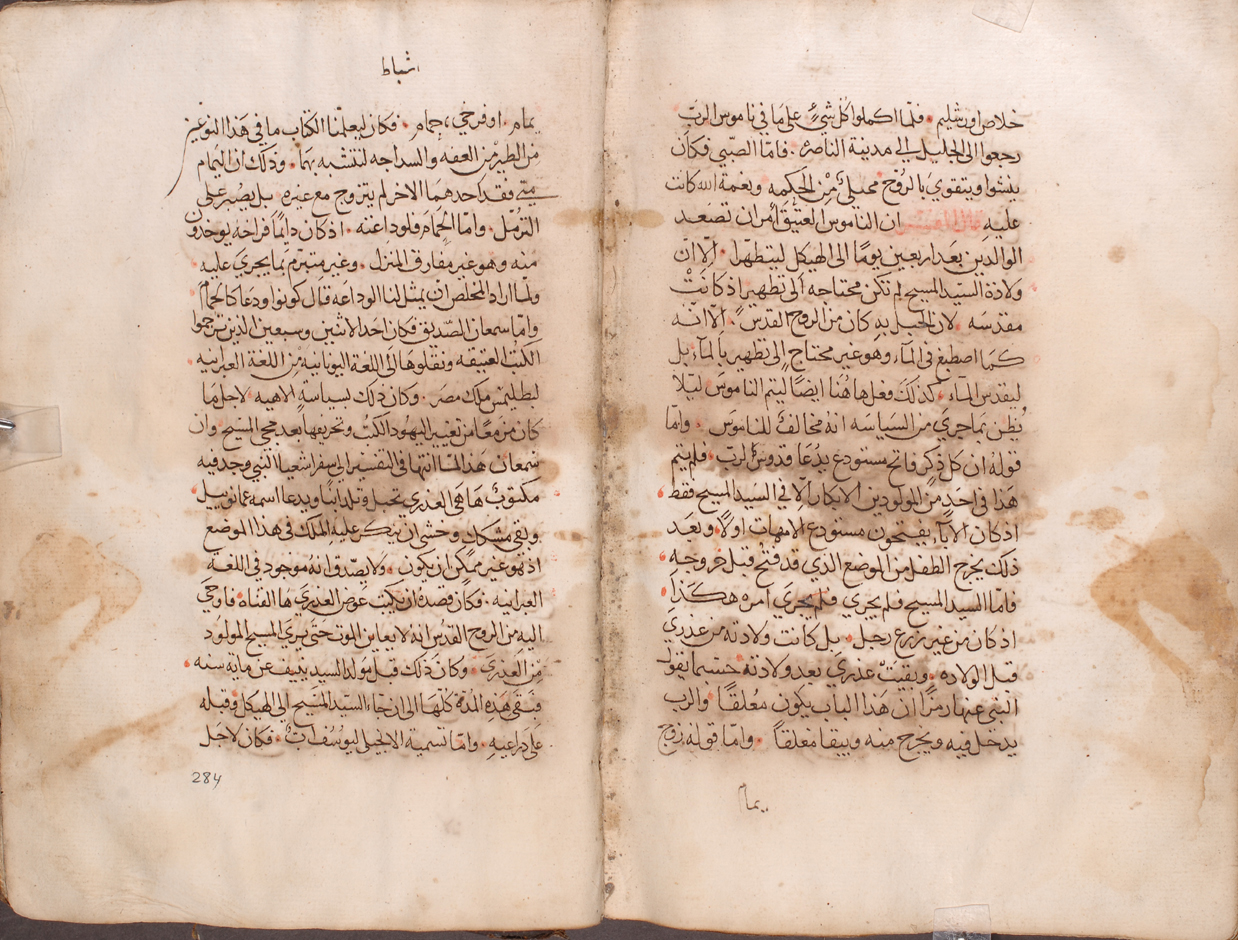 خلاص اورشليم . فلمّا اكملوا كل شيءٍ على ما في ناموس الربّ
رجعوا الى الجليل الى مدينة الناصره . فامّا الصّبي فكان
ينشوا ويتقوي بالرُوّح ممتلئ مِن الحِكمه ونعمة الله كانت
عليهِ قال المفسّر ان الناموس العتيّق أمر ان تصَعد
الوالدين بعَد اربعين يَومًا الى الهيكل ليتطهرا . الّا ان
ولادة السيّد المسيح لم تكن محتاجه الى تطهير اذ كانتْ
مقدسَه . لان الحَبل بهِ كان من الروح القدسْ . الّا انّه
كمَا اصطبغ في المآء وهو غير محتاجٍ الى تطهير بالمآء . بل
ليقدس المآء . كذلكَ وفعل هاهُنا ايضًا ليتم الناموس ليَلا
يُظن بما جري من السَياسَه انه مخالفٌ للناموس . وامّا
قوله ان كل ذكرٍ فاتح مستودع يدُعَا قدوس الرب . فلم يتم
هذا في احَدٍ من المولودين الابكار الّا في السَيد المسيح فقط
اذ كان الابآء يفتحون مستودع الامهات اولًا وبعَد
ذلك يخرج الطفل من الموضع الذي قد فتح قبل خروجه
فامّا السيد المسيح فلم يجري فلم يجري امره هكَذَا
اذ كان من غير زرع رجل . بل كانت ولادته من عذري
قبل الولاده . وبقيتْ عذري بعد ولادته حسبما يقول
النبي عنها رمزًا ان هَذا الباب يكون مغُلقًا والرب
يدخل فيه ويخرج منه ويبقا مغلقاً . وامّا قوله زوج
يمام
اشباط
يمامٍ . او فرخي حمام . فكان ليعلمنا الكتاب ما في هَذا النوعين
من الطير مِن العفه والسداجه لنتشبه بهَا . وذلك ان اليمام
متي فقد احدهمَا الاخر لم يتزوج مع غيره . بل يصبر على
الترمّل . وامّا الحَمام فلوداعته . اذ كان دايمًا فراخه يوخدون
منه وهو غير مفارقٍ المنزل . وغير متبرّم بما يجري عليه .
ولمّا اراد المخلص ان يمثل لنا الوداعَه قال كونوا ودعا كالحمام
وامّا سمعان الصّديق فكان احد الاثنين وسبعين الذين ترجموا
الكتُب العتيقه ونقلوهَا الى اللغة اليونانيه مِن اللغة العبرانيه
لبطليمس ملك مصرَ . وكان ذلك بسياسةٍ الاهيه . لاجل مَا
كان مزمعًا من تغيير اليهُود الكتُب وتحريفها بعد مجي المسيح . وان
سمعان هَذا لمّا انتها في التفسير الى سفر اشعيا النبي وجد فيه
مكتوبٌ هَا هي العذري تحبل وتلد ابنًا ويدعا اسمه عمانوييل
وبقي مشكك وخشي ان ينكر عليه الملك في هذا الموضع
اذ هو غير ممكنٍ ان يكون . ولا يصّدق انه موجود في اللغة
العبرانيه . فكان قصده ان يكتب عوض العَذري هَا الفتاه فاوحي
اليهِ من الروح القدُس انه لا يعاين الموت حتّى يري المسيح المولوُد
من العذري . وكان ذلك قبل مولد السيد ينيف عن مايه سنه
فبقي هَذهِ المدة كلها الى ان جاء السيّد المَسيح الى الهيكل وقبله
على دراعيهِ . وامّا تسمية الانجيلي ليوسف اب . فكان لاجل
284